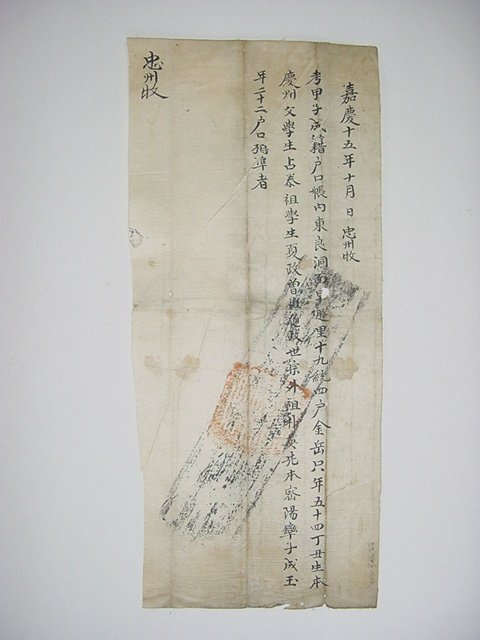 嘉慶十五年十月 日 忠州收
考甲子成籍户口帳內東良洞面里十九統四户金岳只年五十四丁丑生本
慶州父學生占泰祖學生政曾祖外祖朴本密陽率子成玉
年二十二户口準者
忠州收